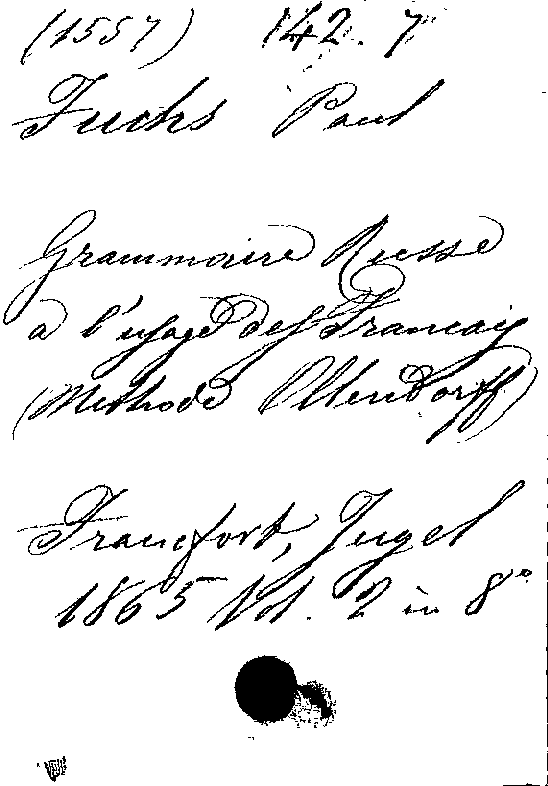 (1557) 142. 7
Fuchs Paul
Grammaire Russe
a l'usage des Francais
(Methode Ollendorff)
Francfort, Jugel
1865 Vol. 2 in 8°